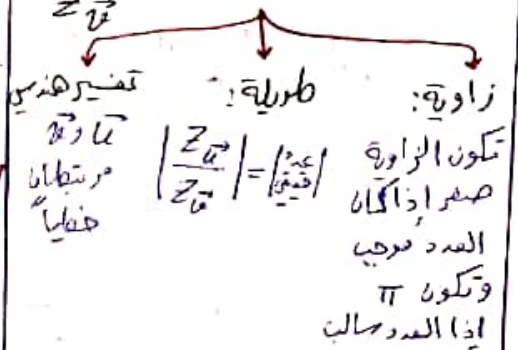 Z_v⃗
زاوية:
تكون الزاوية
صفر إذا كان
العدد موجب
وتكون π
إذا العدد سالب
طويلة:
|Z_u⃗ / Z_v⃗| = |عدد حقيقي|
تفسير هندسي
u⃗ و v⃗
مرتبطان
خطياً